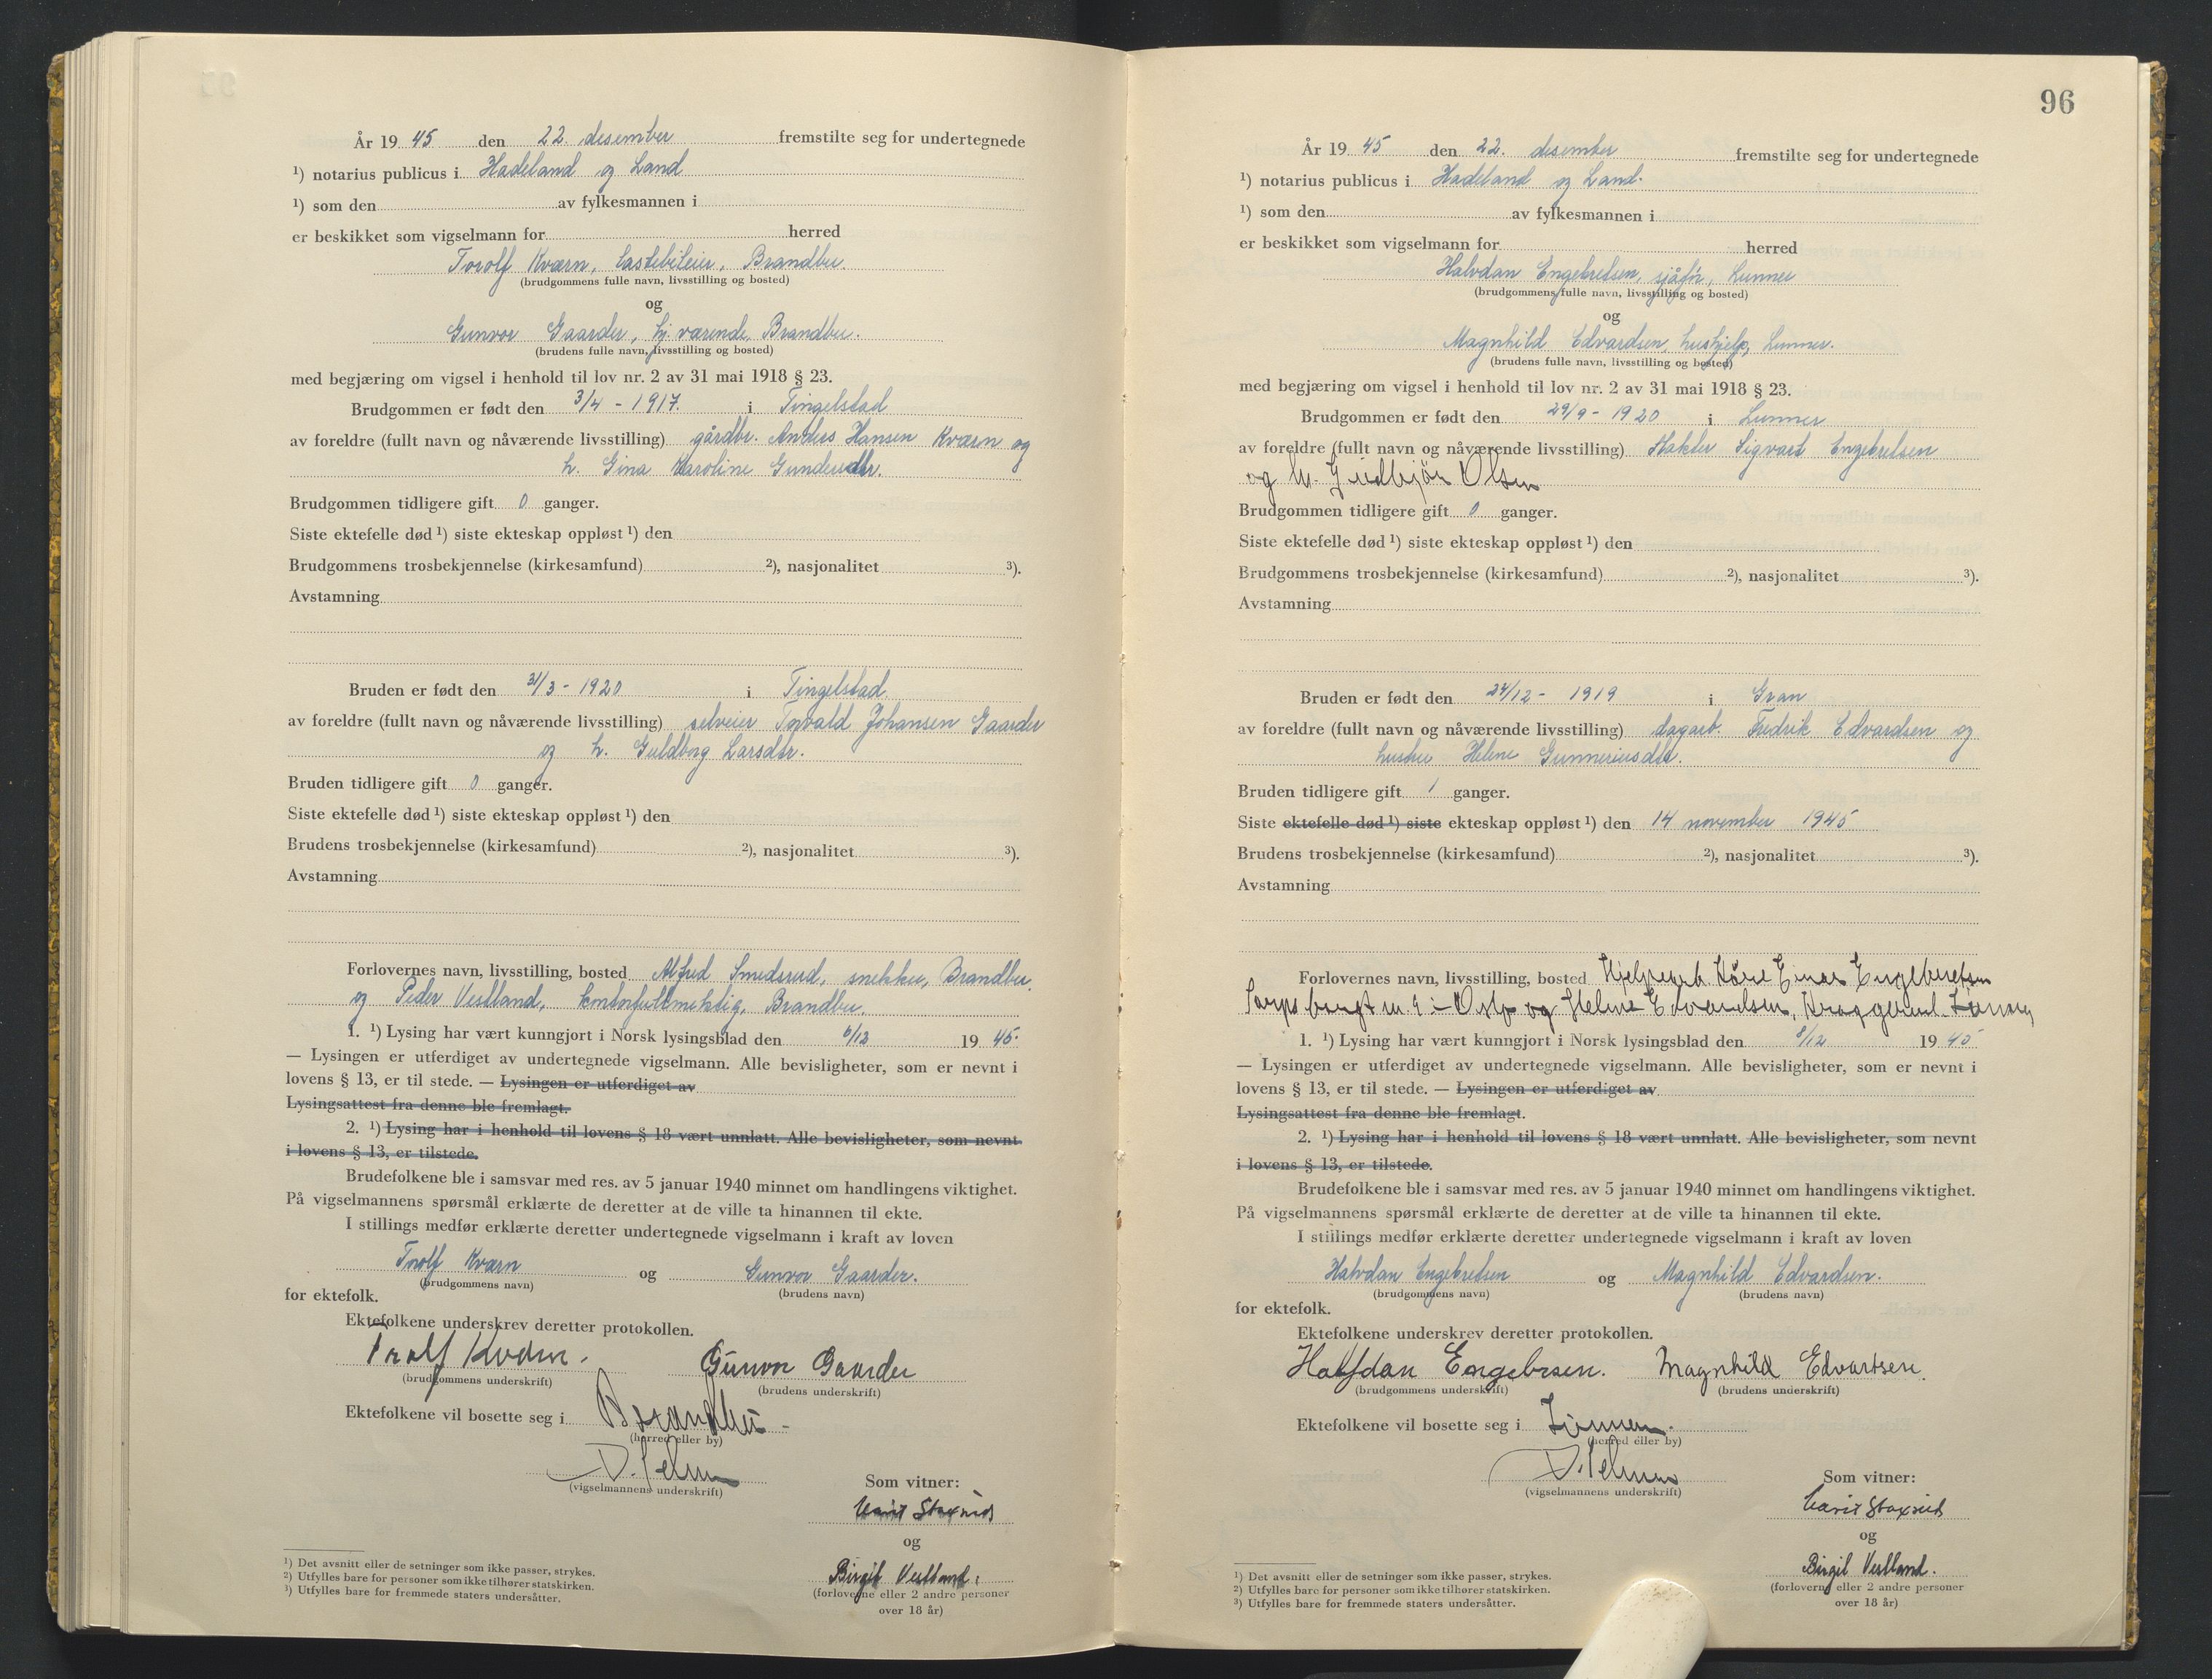 År 19 45 den 22. desember fremstilte seg for undertegnede
¹) notarius publicus i Hadeland og Land
¹) som den av fylkesmannen i
er beskikket som vigselmann for herred
Torolf Kværn, lastebileier, Brandbu.
(brudgommens fulle navn, livsstilling og bosted)
og
Gunvor Gaarder, hj. værende, Brandbu.
(brudens fulle navn, livsstilling og bosted)
med begjæring om vigsel i henhold til lov nr. 2 av 31 mai 1918 § 23.
Brudgommen er født den 3/4 - 1917. i Tingelstad
av foreldre (fullt navn og nåværende livsstilling) gårdbr. Anders Hansen Kværn og
h. Gina Karoline Gundersdtr.
Brudgommen tidligere gift 0 ganger.
Siste ektefelle død ¹) siste ekteskap oppløst ¹) den
Brudgommens trosbekjennelse (kirkesamfund) ²), nasjonalitet ³).
Avstamning
Bruden er født den 31/3 - 1920 i Tingelstad
av foreldre (fullt navn og nåværende livsstilling) selveier Torvald Johansen Gaarder
og h. Guldborg Larsdtr.
Bruden tidligere gift 0 ganger.
Siste ektefelle død ¹) siste ekteskap oppløst ¹) den
Brudens trosbekjennelse (kirkesamfund) ²), nasjonalitet ³).
Avstamning
Forlovernes navn, livsstilling, bosted Alfred Smedsrud, snekker, Brandbu.
og Peder Vestland, kontorfullmektig, Brandbu.
1. ¹) Lysing har vært kunngjort i Norsk lysingsblad den 6/12 19 45.
— Lysingen er utferdiget av undertegnede vigselmann. Alle bevisligheter, som er nevnt i
lovens § 13, er til stede. — Lysingen er utferdiget av
Lysingsattest fra denne ble fremlagt.
2. ¹) Lysing har i henhold til lovens § 18 vært unnlatt. Alle bevisligheter, som nevnt
i lovens § 13, er tilstede.
Brudefolkene ble i samsvar med res. av 5 januar 1940 minnet om handlingens viktighet.
På vigselmannens spørsmål erklærte de deretter at de ville ta hinannen til ekte.
I stillings medfør erklærte deretter undertegnede vigselmann i kraft av loven
Torolf Kværn og Gunvor Gaarder.
(brudgommens navn) (brudens navn)
for ektefolk.
Ektefolkene underskrev deretter protokollen.
Torolf Kværn. Gunvor Gaarder
(brudgommens underskrift) (brudens underskrift)
Ektefolkene vil bosette seg i Brandbu -
(herred eller by)
(vigselmannens underskrift)
Som vitner:
Marit Staxrud
og
Birgit Vestland.
(forloverne eller 2 andre personer
over 18 år)
¹) Det avsnitt eller de setninger som ikke passer, strykes.
²) Utfylles bare for personer som ikke tilhører statskirken.
³) Utfylles bare for fremmede staters undersåtter.
96
År 19 45 den 22. desember fremstilte seg for undertegnede
¹) notarius publicus i Hadeland og Land.
¹) som den av fylkesmannen i
er beskikket som vigselmann for herred
Halvdan Engebretsen, sjåfør, Lunner
(brudgommens fulle navn, livsstilling og bosted)
og
Magnhild Edvardsen, hushjelp, Lunner.
(brudens fulle navn, livsstilling og bosted)
med begjæring om vigsel i henhold til lov nr. 2 av 31 mai 1918 § 23.
Brudgommen er født den 29/9 - 1920 i Lunner
av foreldre (fullt navn og nåværende livsstilling) Sigvart Engebretsen
og h. Gudbjør Olsen
Brudgommen tidligere gift 0 ganger.
Siste ektefelle død ¹) siste ekteskap oppløst ¹) den
Brudgommens trosbekjennelse (kirkesamfund) ²), nasjonalitet ³).
Avstamning
Bruden er født den 24/12 - 1919 i Gran
av foreldre (fullt navn og nåværende livsstilling) dagarb. Fredrik Edvardsen og
hustru Helene Gunneriusdtr.
Bruden tidligere gift 1 ganger.
Siste ektefelle død ¹) siste ekteskap oppløst ¹) den 14 november 1945
Brudens trosbekjennelse (kirkesamfund) ²), nasjonalitet ³).
Avstamning
Forlovernes navn, livsstilling, bosted Hjelpearb. Kåre Einar Engebretsen
Sarpsborggt. Oslo og Helene Edvardsen, Lunner
1. ¹) Lysing har vært kunngjort i Norsk lysingsblad den 8/12 19 45
— Lysingen er utferdiget av undertegnede vigselmann. Alle bevisligheter, som er nevnt i
lovens § 13, er til stede. — Lysingen er utferdiget av
Lysingsattest fra denne ble fremlagt.
2. ¹) Lysing har i henhold til lovens § 18 vært unnlatt. Alle bevisligheter, som nevnt
i lovens § 13, er tilstede.
Brudefolkene ble i samsvar med res. av 5 januar 1940 minnet om handlingens viktighet.
På vigselmannens spørsmål erklærte de deretter at de ville ta hinannen til ekte.
I stillings medfør erklærte deretter undertegnede vigselmann i kraft av loven
Halvdan Engebretsen og Magnhild Edvardsen.
(brudgommens navn) (brudens navn)
for ektefolk.
Ektefolkene underskrev deretter protokollen.
Halfdan Engebrsen. Magnhild Edvartsen.
(brudgommens underskrift) (brudens underskrift)
Ektefolkene vil bosette seg i Lunner.
(herred eller by)
(vigselmannens underskrift)
Som vitner:
Marit Staxrud
og
Birgit Vestland.
(forloverne eller 2 andre personer
over 18 år)
¹) Det avsnitt eller de setninger som ikke passer, strykes.
²) Utfylles bare for personer som ikke tilhører statskirken.
³) Utfylles bare for fremmede staters undersåtter.